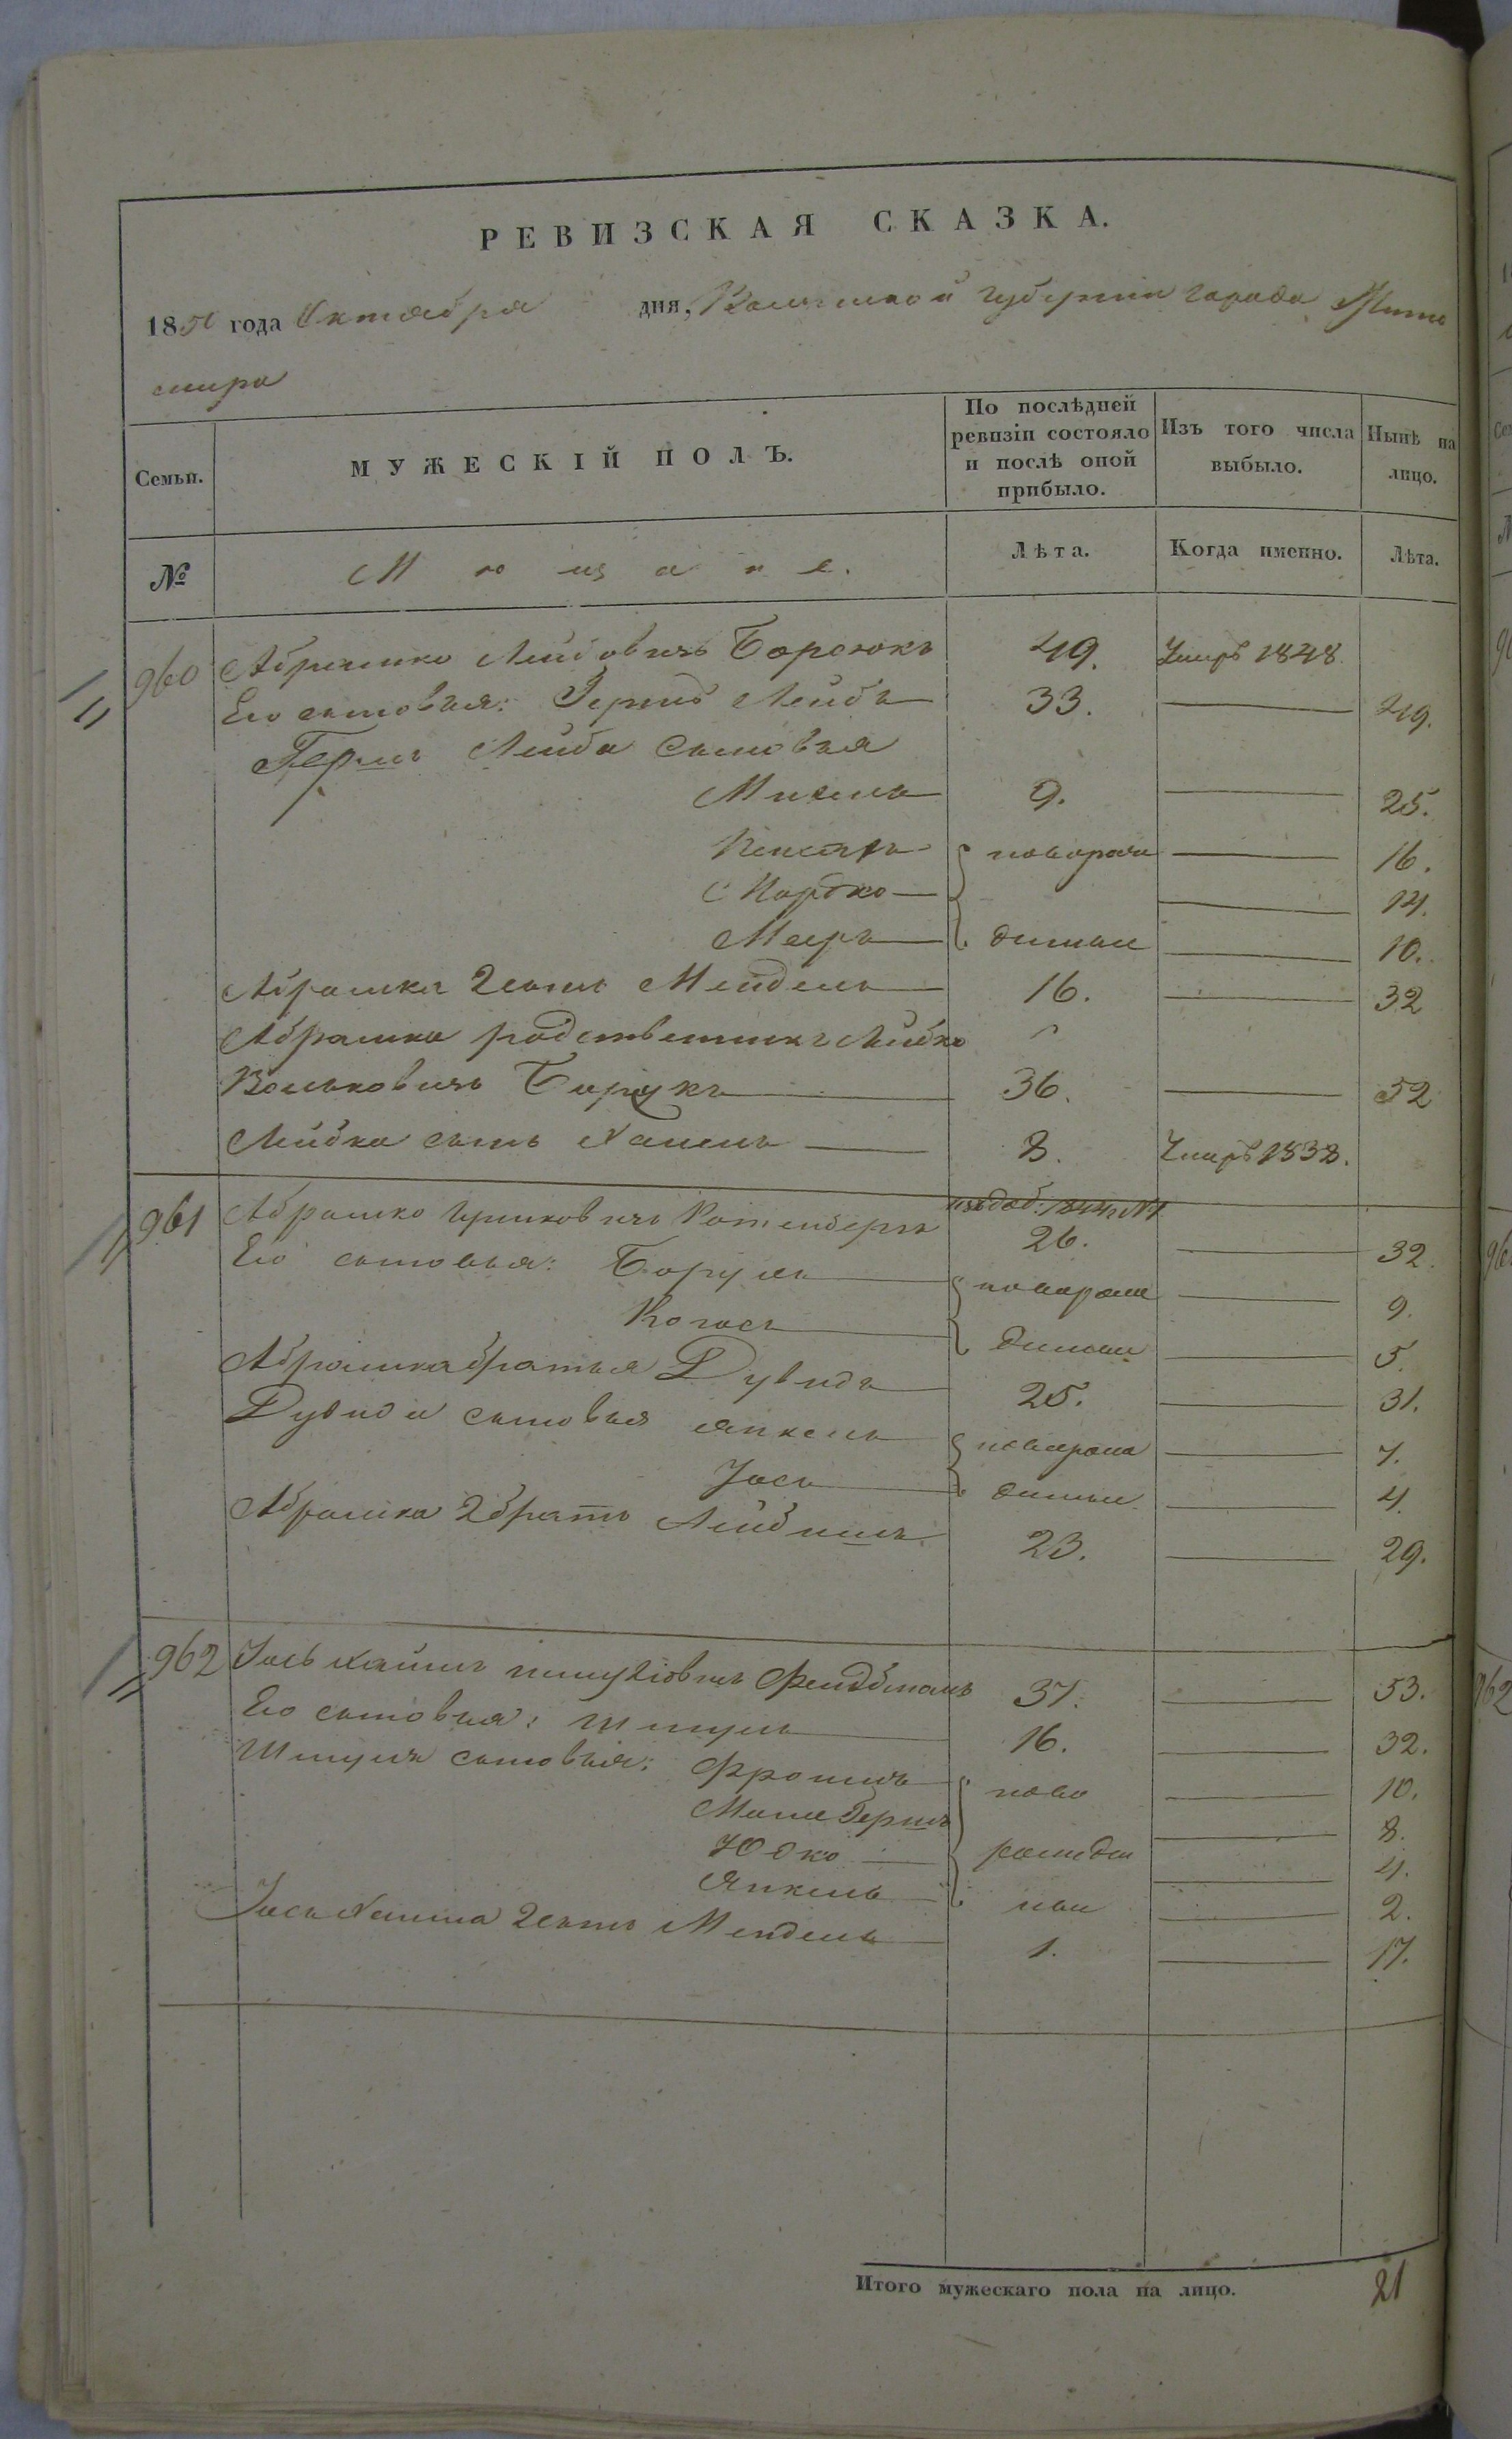 РЕВИЗСКАЯ СКАЗКА.
1850 года Октября дня, Волынской губернии города Жито
мира
Семьи. МУЖЕСКІЙ ПОЛЪ. По послѣдней ревизіи состояло и послѣ оной прибыло. Изъ того числа выбыло. Нынѣ на лицо.
№ Мѣщане. Лѣта. Когда именно. Лѣта.
960 Абрамко Лейбовичъ Борсюкъ 49. Умеръ 1848
Его сыновья: Гершъ Лейба 33. 49.
Гершъ Лейба сыновья
Михель 9. 25.
новорож 16.
Мордко 14.
Мееръ денные 10.
Абрамка 2 сынъ Мендель 16. 32
Абрамка родственникъ Лейбко
Вольковичъ 36. 52
Лейбка сынъ Хаимъ 8. Умеръ 1838.
961 Абрамко Ицковичъ Ротенберъ изъ доб. 1844 № 1 26. 32.
Его сыновья: Борухъ новорож 9.
денные 5.
Абрамка братья Дувидъ 25. 31.
Дувида сыновья Янкель новорож 7.
Іось денные 4.
Абрамка 2 братъ Лейбишъ 23. 29.
962 Іось Хаимъ 37. 53.
Его сыновья: Шмуль 16. 32.
Шмуля сыновья: Фроимъ ново 10.
Моше Гершъ 8.
Юдко рожден 4.
Янкель ные 2.
Іось Хаима 2 сынъ Мендель 1. 17.
Итого мужескаго пола на лицо. 21